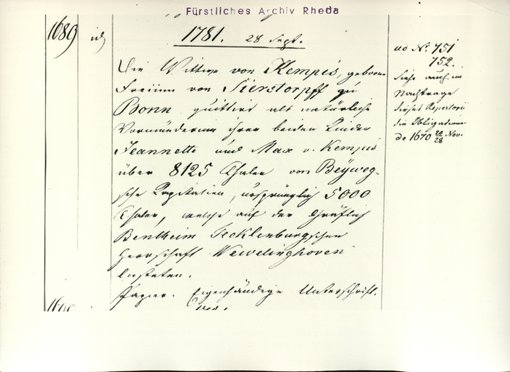 Fürstliches Archiv Rheda
1689
1781. 28 Sept.
Die Wittwe von Kempis, geborene
Freiinn von Sierstorpff zu
Bonn quittiert als natürliche
Vormünderin ihrer beiden Kinder
Jeannette und Max v. Kempis
über 8125 Thaler von Beyweg-
sche Kapitalien, ursprünglich 5000
Thaler, welche auf der Gräflich
Bentheim Tecklenburgschen
Herrschaft Wevelinghoven
lasteten.
Papier. Eigenhändige Unterschrift.
ad Nº. 751
752.
Siehe auch im
Nachtrage
dieses Repertorii
die Obligation
de 1670 22/28 Nov.